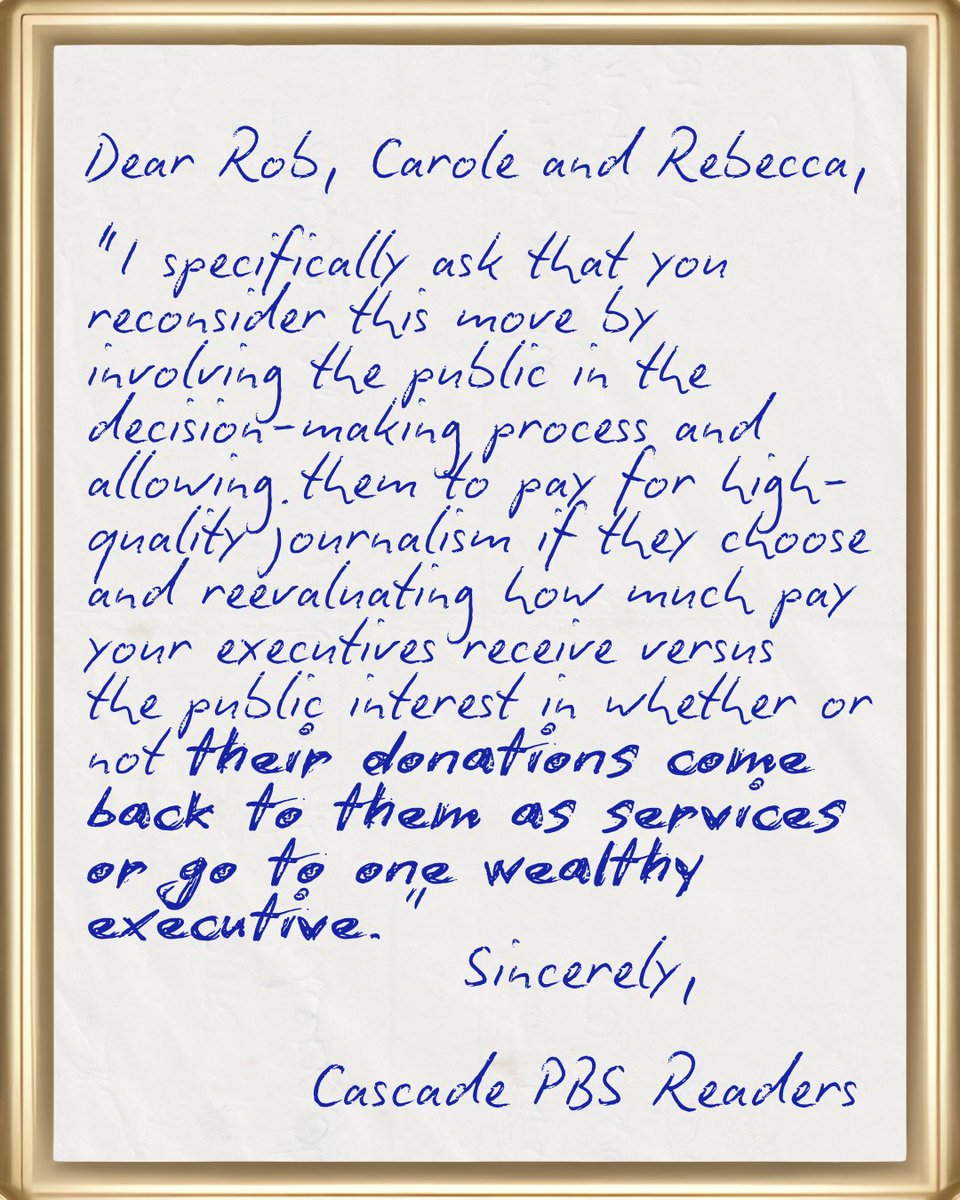 Dear Rob, Carole and Rebecca,
"I specifically ask that you
reconsider this move by
involving the public in the
decision-making process and
allowing them to pay for high-
quality journalism if they choose
and reevaluating how much pay
your executives receive versus
the public interest in whether or
not their donations come
back to them as services
or go to one wealthy
executive."
Sincerely,
Cascade PBS Readers